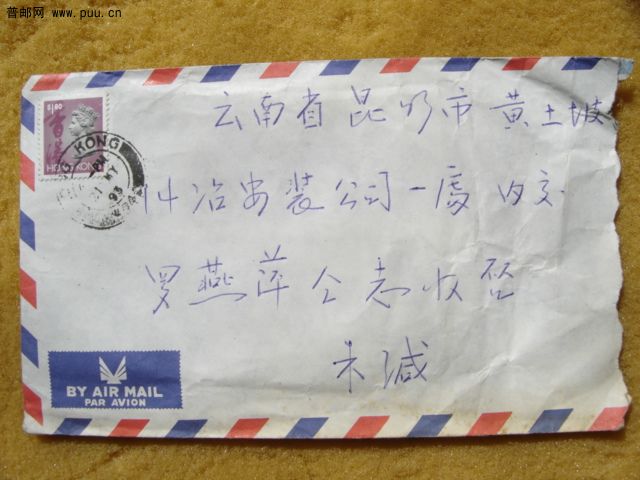 普邮网 www.puu.cn
$1.80
香港
HONG KONG
HONG KONG
93
云南省昆明市黄土坡
14冶安装公司一處内交
罗燕萍仝志收启
朱缄
BY AIR MAIL
PAR AVION